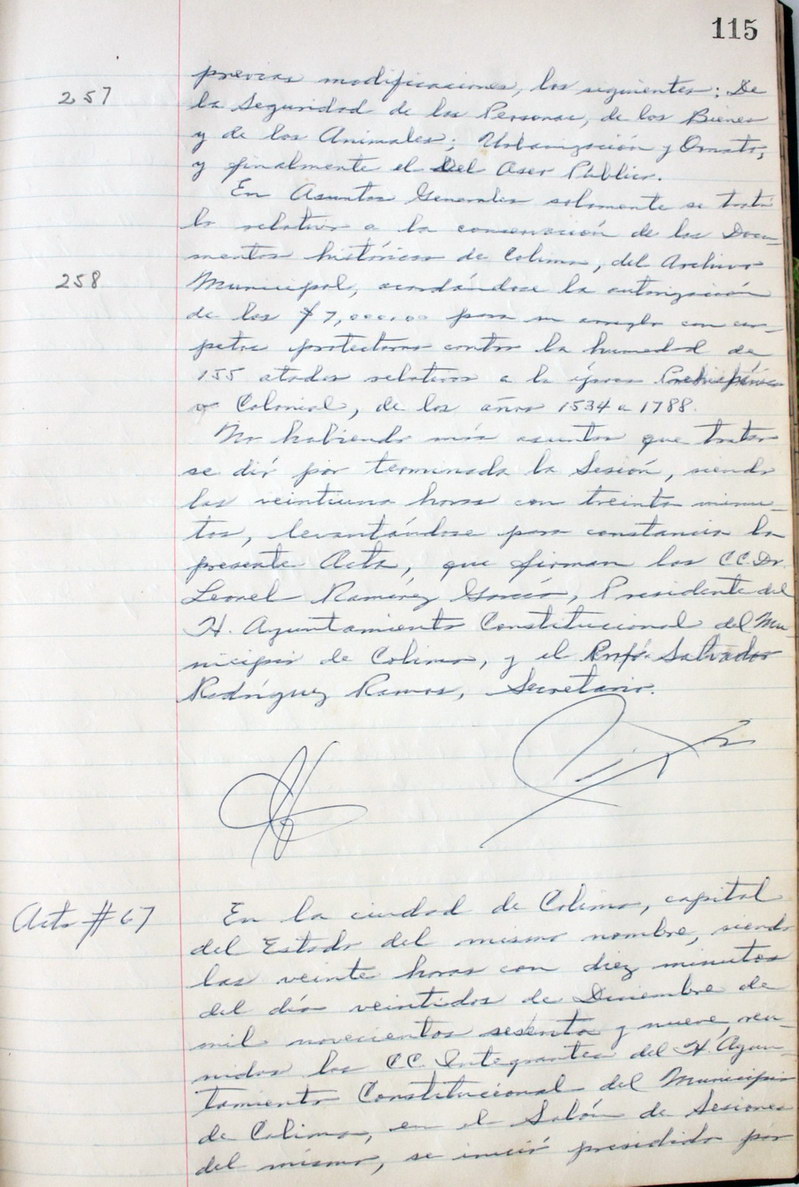 115
previas modificaciones, los siguientes: De
257
la Seguridad de las Personas, de los Bienes
y de los Animales; Urbanización y Ornato;
y finalmente el Del Aseo Público.
En Asuntos Generales solamente se trató
lo relativo a la conservación de los Docu-
mentos históricos de Colima, del Archivo
258
Municipal, acordándose la autorización
de los $7,000.00 para su arreglo con car-
petas protectoras contra la humedad de
155 atados relativos a la época Prehispánica
o Colonial, de los años 1534 a 1788.
No habiendo más asuntos que tratar
se dió por terminada la Sesión, siendo
las veintiuna horas con treinta minu-
tos, levantándose para constancia la
presente Acta, que firman los CC. Dr.
Leonel Ramírez García, Presidente del
H. Ayuntamiento Constitucional del Mu-
nicipio de Colima, y el Profr. Salvador
Rodríguez Ramos, Secretario.
Acta #67
En la ciudad de Colima, capital
del Estado del mismo nombre, siendo
las veinte horas con diez minutos
del día veintidos de Diciembre de
mil novecientos sesenta y nueve, reu-
nidos los CC. Integrantes del H. Ayun-
tamiento Constitucional del Municipio
de Colima, en el Salón de Sesiones
del mismo, se inició presidida por